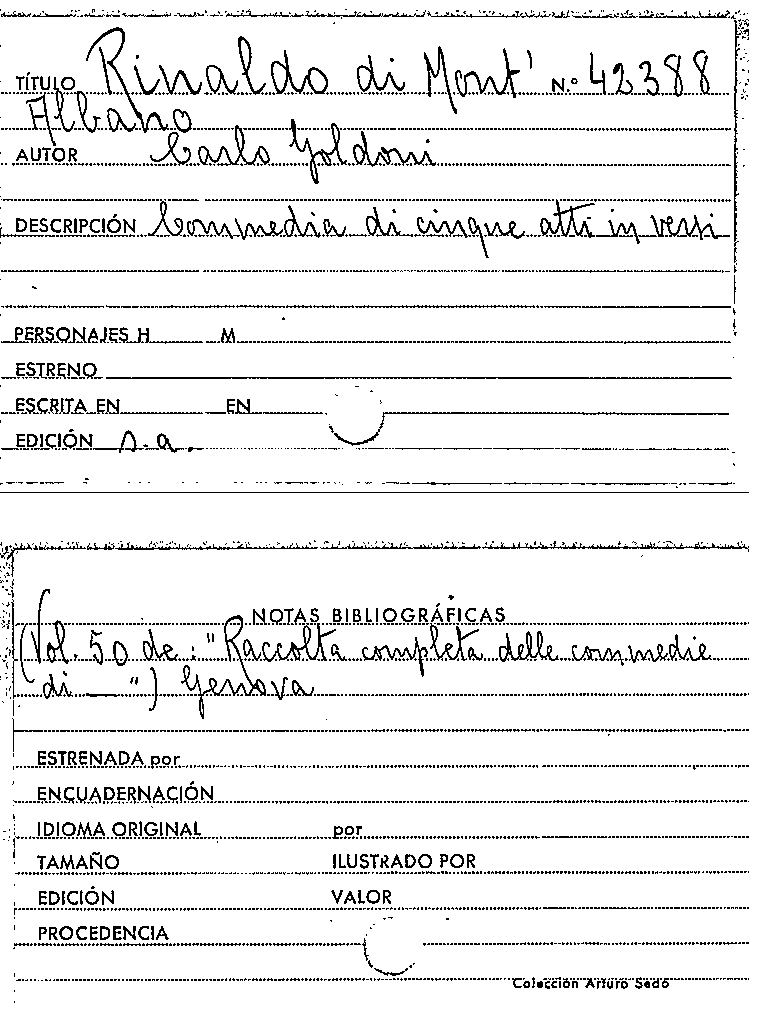 TÍTULO Rinaldo di Mont' N.º 42388
Albano
AUTOR Carlo Goldoni
DESCRIPCIÓN Commedia di cinque atti in versi
PERSONAJES H M
ESTRENO
ESCRITA EN EN
EDICIÓN s.a.
NOTAS BIBLIOGRÁFICAS
(Vol. 50 de: "Raccolta completa delle commedie
di — ") Genova
ESTRENADA por
ENCUADERNACIÓN
IDIOMA ORIGINAL por
TAMAÑO ILUSTRADO POR
EDICIÓN VALOR
PROCEDENCIA
Colección Arturo Sedó